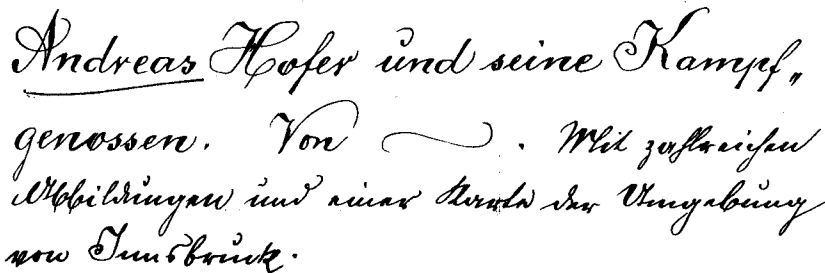 Andreas Hofer und seine Kampf„
genossen. Von ——— . Mit zahlreichen
Abbildungen und einer Karte der Umgebung
von Innsbruck.